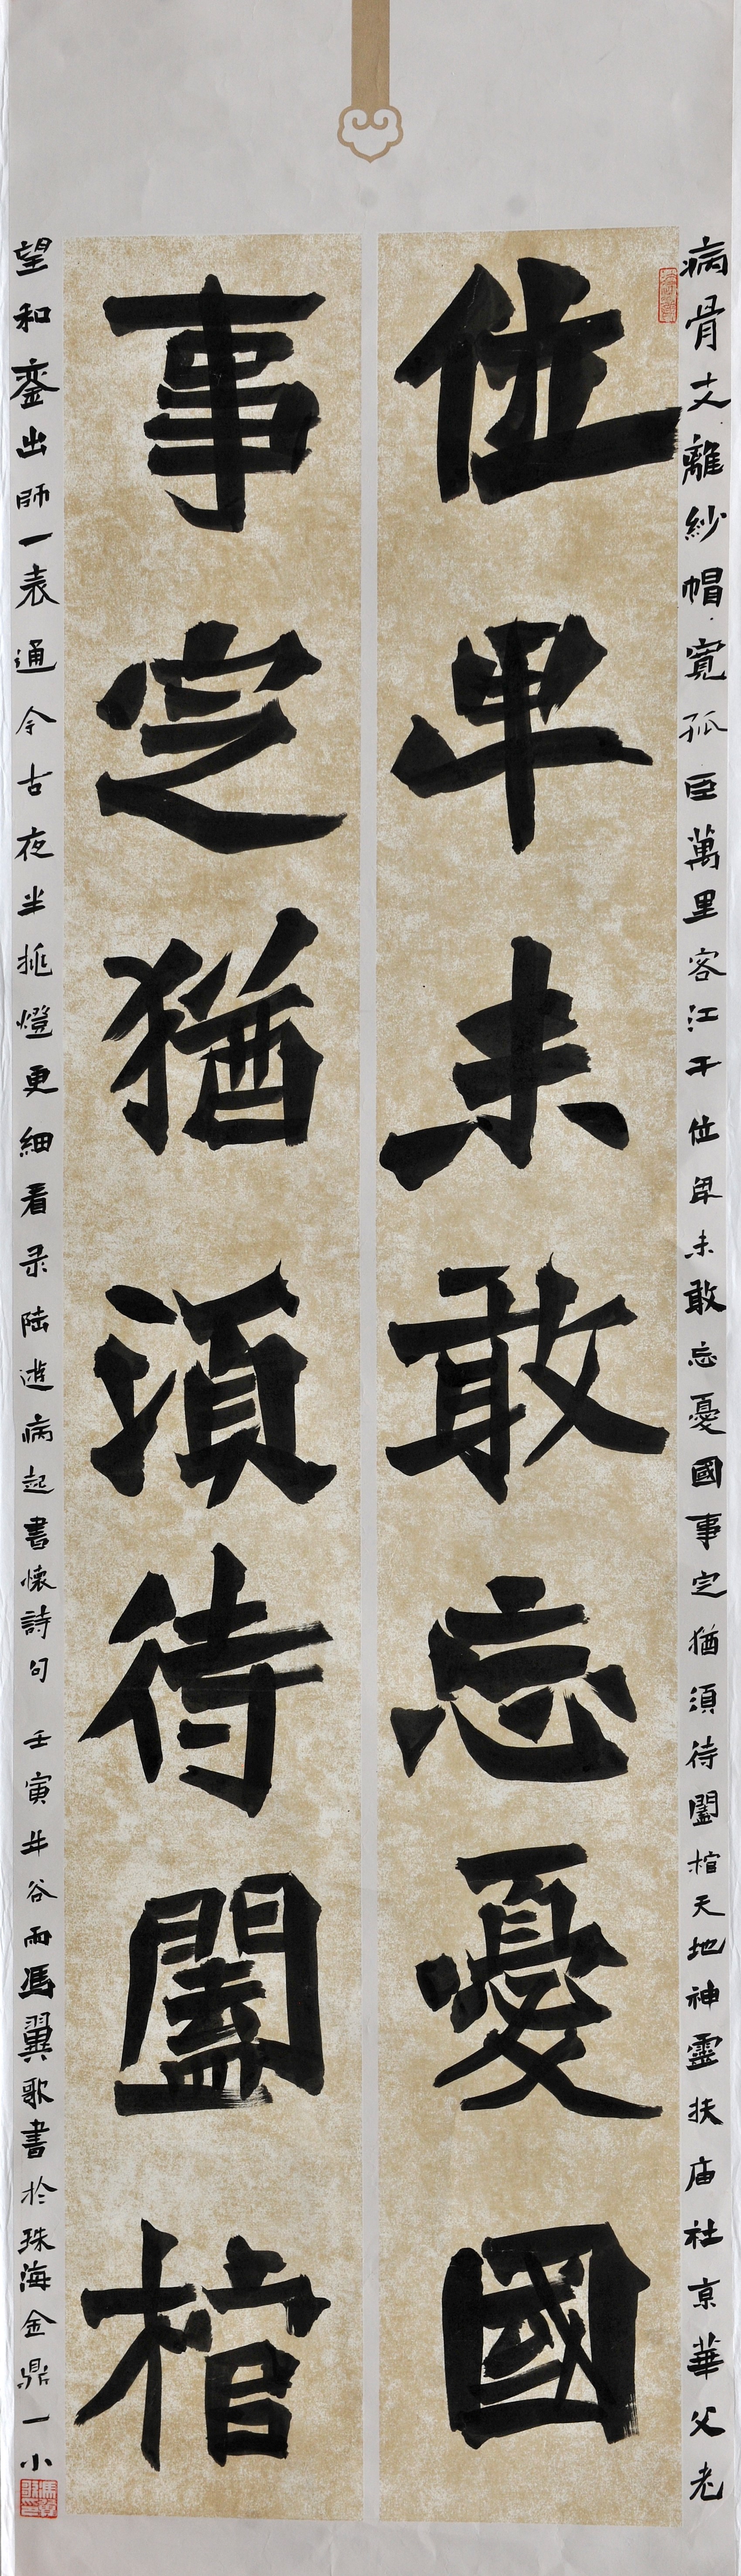 病骨支離紗帽寬孤臣萬里客江干位卑未敢忘憂國事定猶須待闔棺天地神靈扶庙社京華父老
位卑未敢忘憂國
事定猶須待闔棺
望和銮出師一表通今古夜半挑燈更細看录陆遊病起書懷詩句 壬寅年谷雨馮翼歌書於珠海金鼎一小